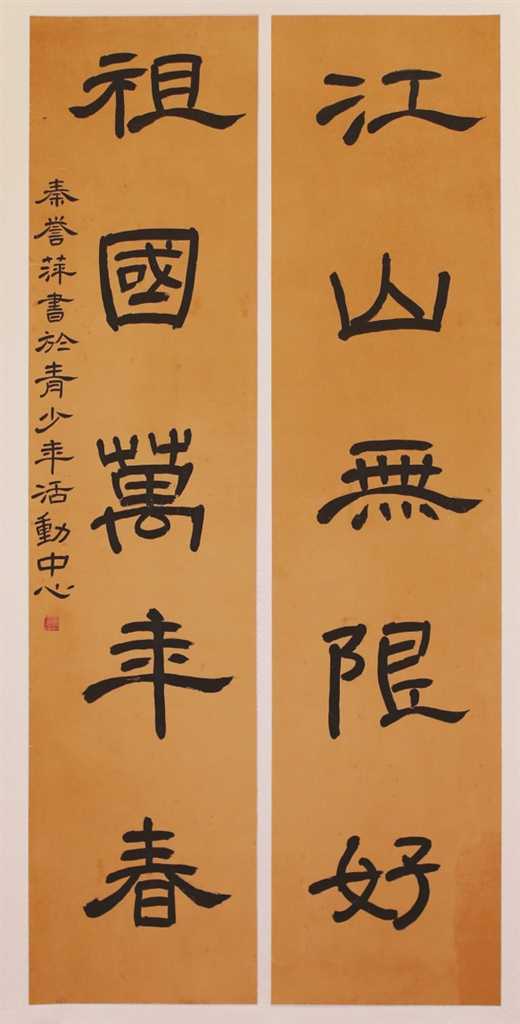 江山無限好
祖國萬年春
秦誉萍書於青少年活動中心